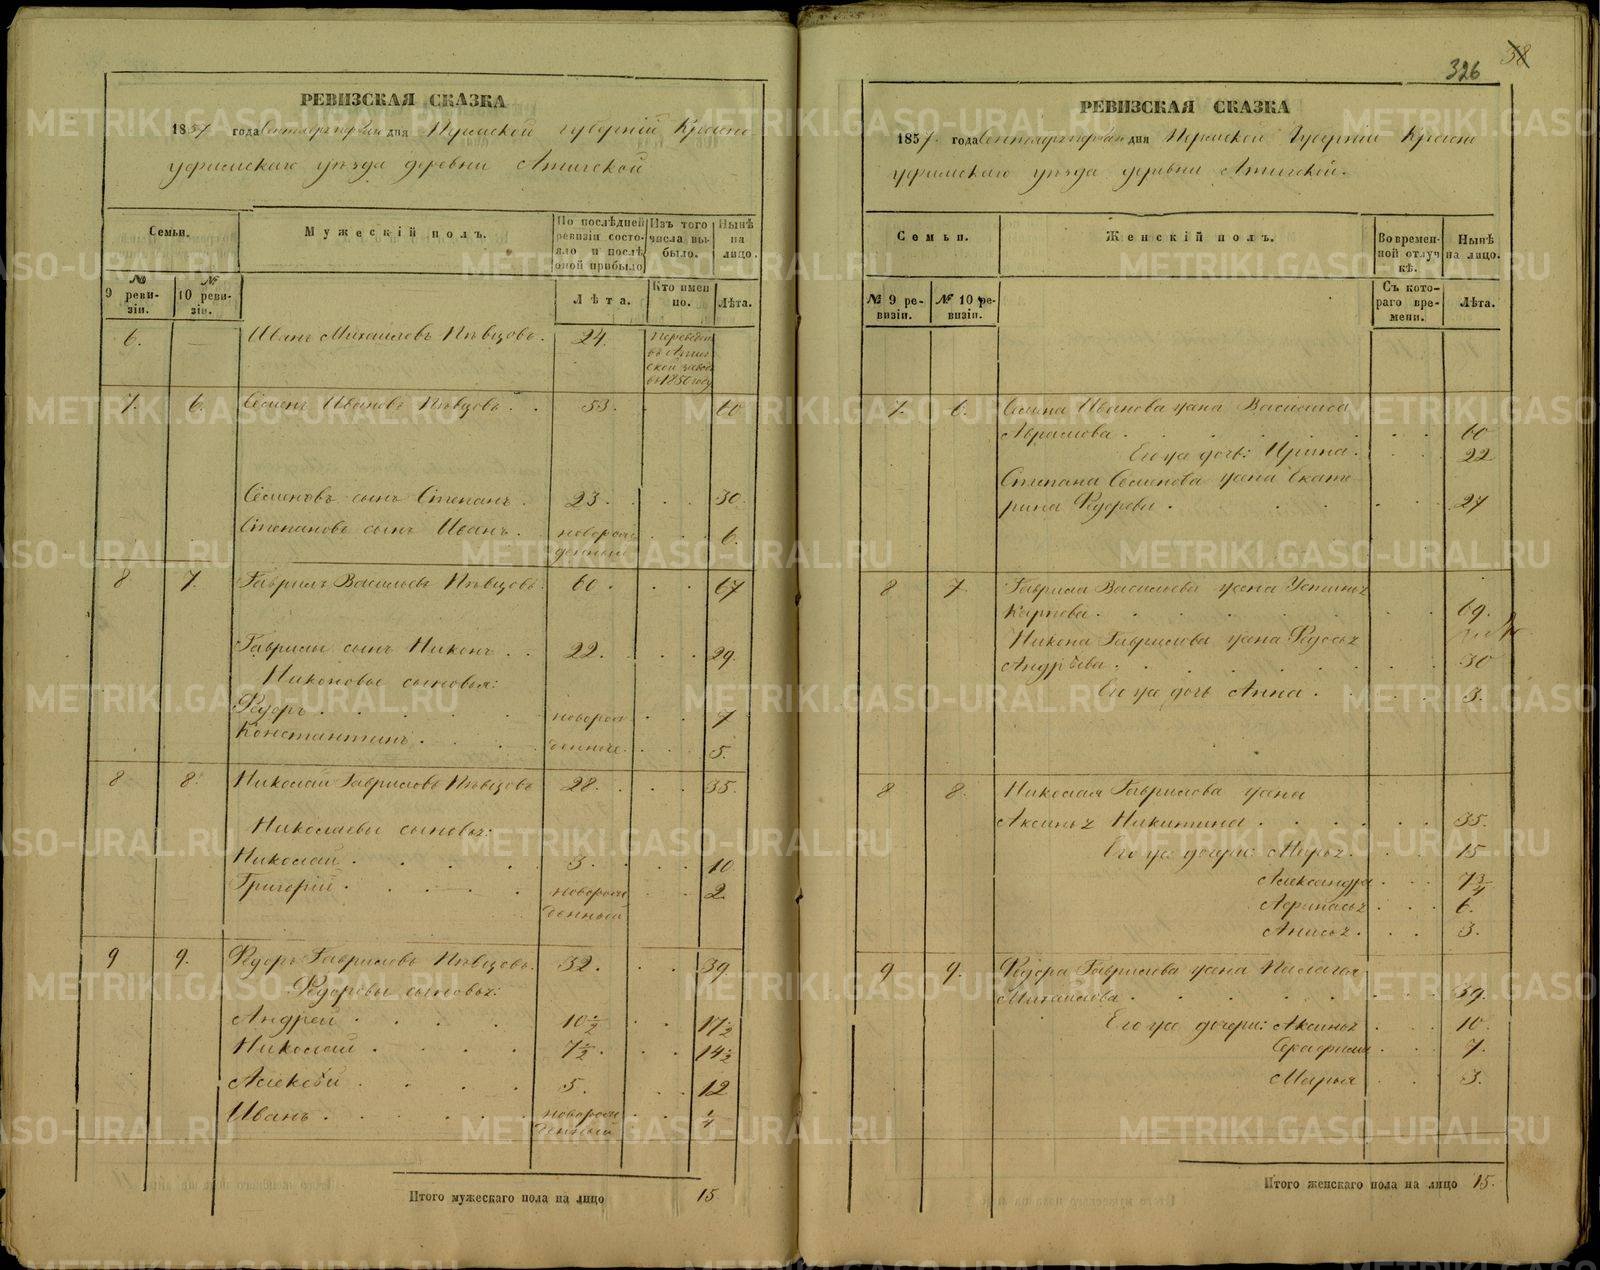 РЕВИЗСКАЯ СКАЗКА
1857 года Сентября дня Пермской губерній Красно
уфимскаго уѣзда деревни Атигской
Семьи.
Мужескій полъ.
По послѣдней ревизіи состояло и послѣ оной прибыло
Изъ того числа выбыло.
Нынѣ на лицо.
№ 9 ревизіи.
№ 10 ревизіи.
Лѣта.
Кто именно.
Лѣта.
6. — Иванъ Михаиловъ Пѣвцовъ. 24. переведен въ Атигской заводъ въ 1850 году
7. 6. Семенъ Ивановъ Пѣвцовъ . . 53. . 60
Семеновъ сынъ Степанъ . 23. . . . 30.
Степановъ сынъ Иванъ . новорожденный . . . 6.
8 7. Гаврилъ Васильевъ Пѣвцовъ. 60 . . . 67
Гаврилы сынъ Никонъ . . 22. . . . 29.
Никоновы сыновья:
Федоръ . . . . . новорож . . 7
Константинъ . . . . денные. . . . 5.
8 8. Николай Гавриловъ Пѣвцовъ 28. . . . 35.
Николаевы сыновья:
Николай . . . . . 3. . . . 10
Григорій . . . . . новорожденный . . 2.
9 9. Федоръ Гавриловъ Пѣвцовъ. 32. . . 39
Федоровы сыновья:
Андрей . . . . 10½ . . 17½
Николай . . . . 7½ . . 14½
Алексѣй . . . . 5. . . 12
Иванъ . . . . . новорожденный . . ¼
Итого мужескаго пола на лицо 15
326
38
РЕВИЗСКАЯ СКАЗКА
1857. года Сентября дня Пермской Губерніи Красно
уфимскаго уѣзда деревни Атигской.
Семьи.
Женскій полъ.
Во временной отлучкѣ.
Нынѣ на лицо.
№ 9 ревизіи.
№ 10 ревизіи.
Съ котораго времени.
Лѣта.
7. 6. Семена Иванова жена Василиса
Абрамова . . . . . . . 60
Его же дочь: Ирина . . . 22
Степана Семенова жена Екате
рина Федорова . . . . 27
8 7. Гаврила Васильева жена Устинья
Карпова . . . . . . 69.
Никона Гаврилова жена Федосья
Андрѣева . . . . . . . 30
Его же дочь Анна . . . . 3.
8 8. Николая Гаврилова жена
Аксинья Никитина . . . . . . 35.
Его же дочери: Марья . . . 15
Александра . . . 7¾
Афанасья . . . 6.
Анисья . . . 3.
9 9. Федора Гаврилова жена Палагея
Михаилова . . . . . . . 39.
Его же дочери: Аксинья . . . 10.
Серафима . . . 7.
Марья . . . 3.
Итого женскаго пола на лицо 15.
METRIKI.GASO-URAL.RU